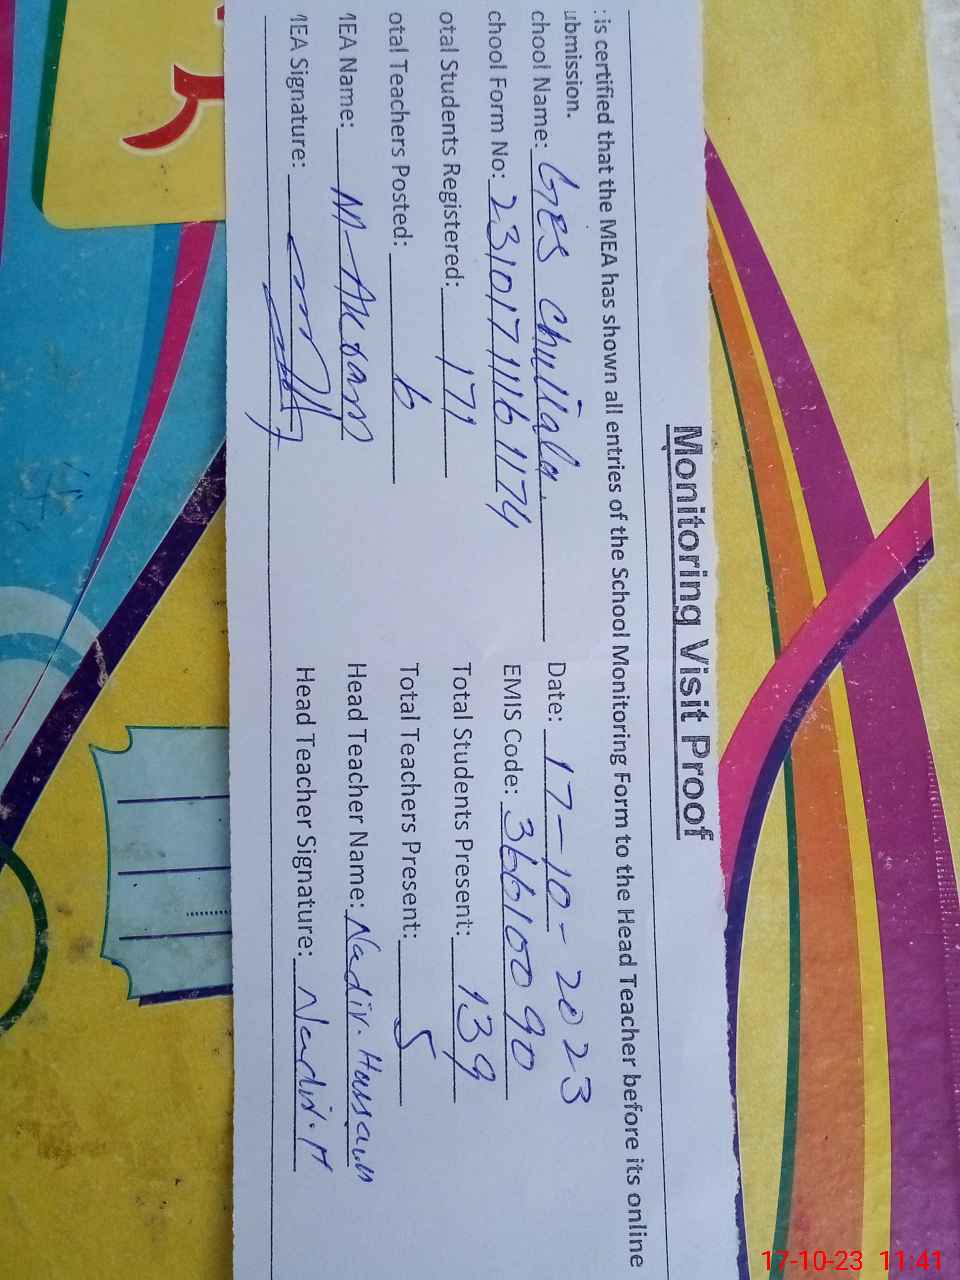 Monitoring Visit Proof
: is certified that the MEA has shown all entries of the School Monitoring Form to the Head Teacher before its online
ubmission.
chool Name: GES Chullala. Date: 17-10-2023
chool Form No: 231017111611174 EMIS Code: 36610090
otal Students Registered: 171 Total Students Present: 139
otal Teachers Posted: 6 Total Teachers Present: 5
MEA Name: M-Akram Head Teacher Name: Nadir. Hassan
MEA Signature: Head Teacher Signature: Nadir. H
17-10-23 11:41